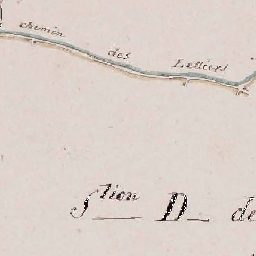 chemin des Lettiers
Stion D de